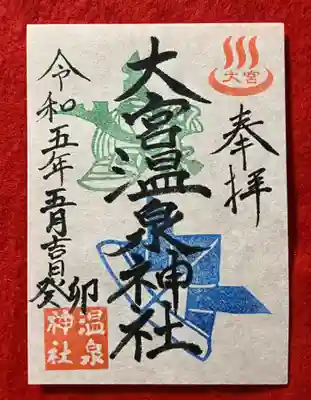 大宮
奉拝
大宮温泉神社
令和五年五月吉日
癸卯
温泉
神社